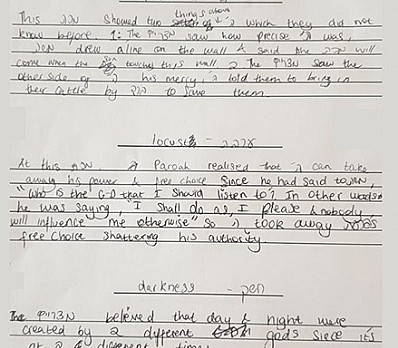 This מכה showed two things about ה' which they did not
know before. 1: The מצרים saw how precise ה' was,
drew a line on the wall & said the מכה will
come when the sun touches this wall 2 The מצרים saw the
other side of ה' his mercy, ה' told them to bring in
their cattle by ברד to save them.
locusts - ארבה
At this מכה Paroah realised that ה' can take
away his power & free choice since he had said to משה,
"who is the G-D that I should listen to? In other words
he was saying, "I shall do as I please & nobody
will influence me otherwise" so ה' took away
free choice shattering his authority.
darkness - חשך
The מצרים believed that day & night were
created by 2 different gods siece it's
at 2 different times